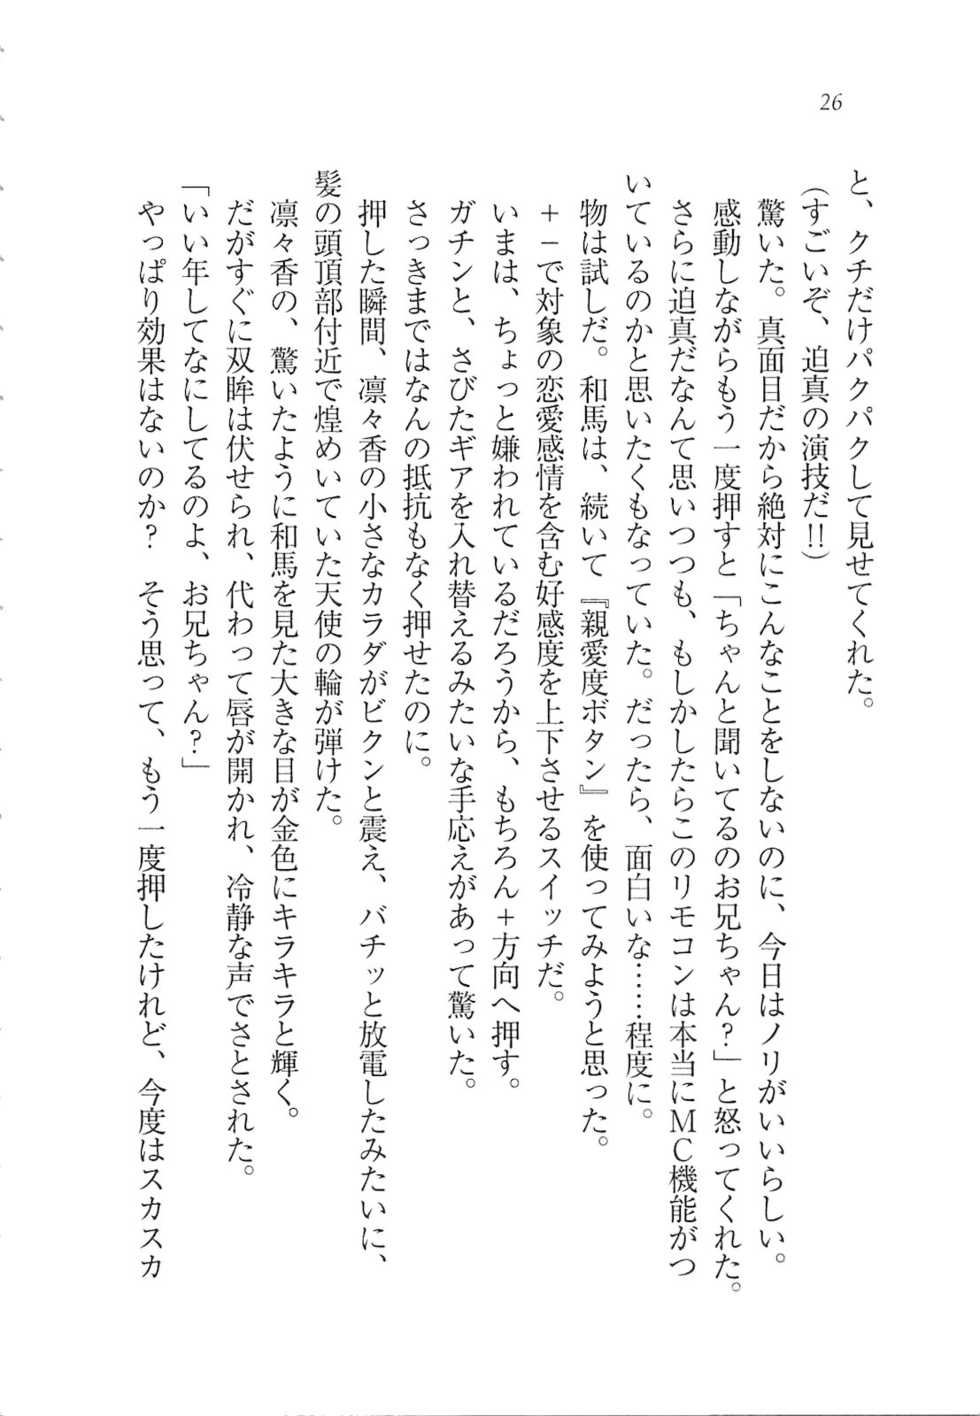 26
と、クチだけパクパクして見せてくれた。
(すごいぞ、迫真の演技だ!!)
驚いた。真面目だから絶対にこんなことをしないのに、今日はノリがいいらしい。
感動しながらもう一度押すと「ちゃんと聞いてるのお兄ちゃん？」と怒ってくれた。
さらに迫真だなんて思いつつも、もしかしたらこのリモコンは本当にMC機能がつ
いているのかと思いたくもなっていた。だったら、面白いな……程度に。
物は試しだ。和馬は、続いて『親愛度ボタン』を使ってみようと思った。
＋－で対象の恋愛感情を含む好感度を上下させるスイッチだ。
いまは、ちょっと嫌われているだろうから、もちろん＋方向へ押す。
ガチンと、さびたギアを入れ替えるみたいな手応えがあって驚いた。
さっきまではなんの抵抗もなく押せたのに。
押した瞬間、凛々香の小さなカラダがビクンと震え、バチッと放電したみたいに、
髪の頭頂部付近で煌めいていた天使の輪が弾けた。
凛々香の、驚いたように和馬を見た大きな目が金色にキラキラと輝く。
だがすぐに双眸は伏せられ、代わって唇が開かれ、冷静な声でさとされた。
「いい年してなにしてるのよ、お兄ちゃん？」
やっぱり効果はないのか？　そう思って、もう一度押したけれど、今度はスカスカ